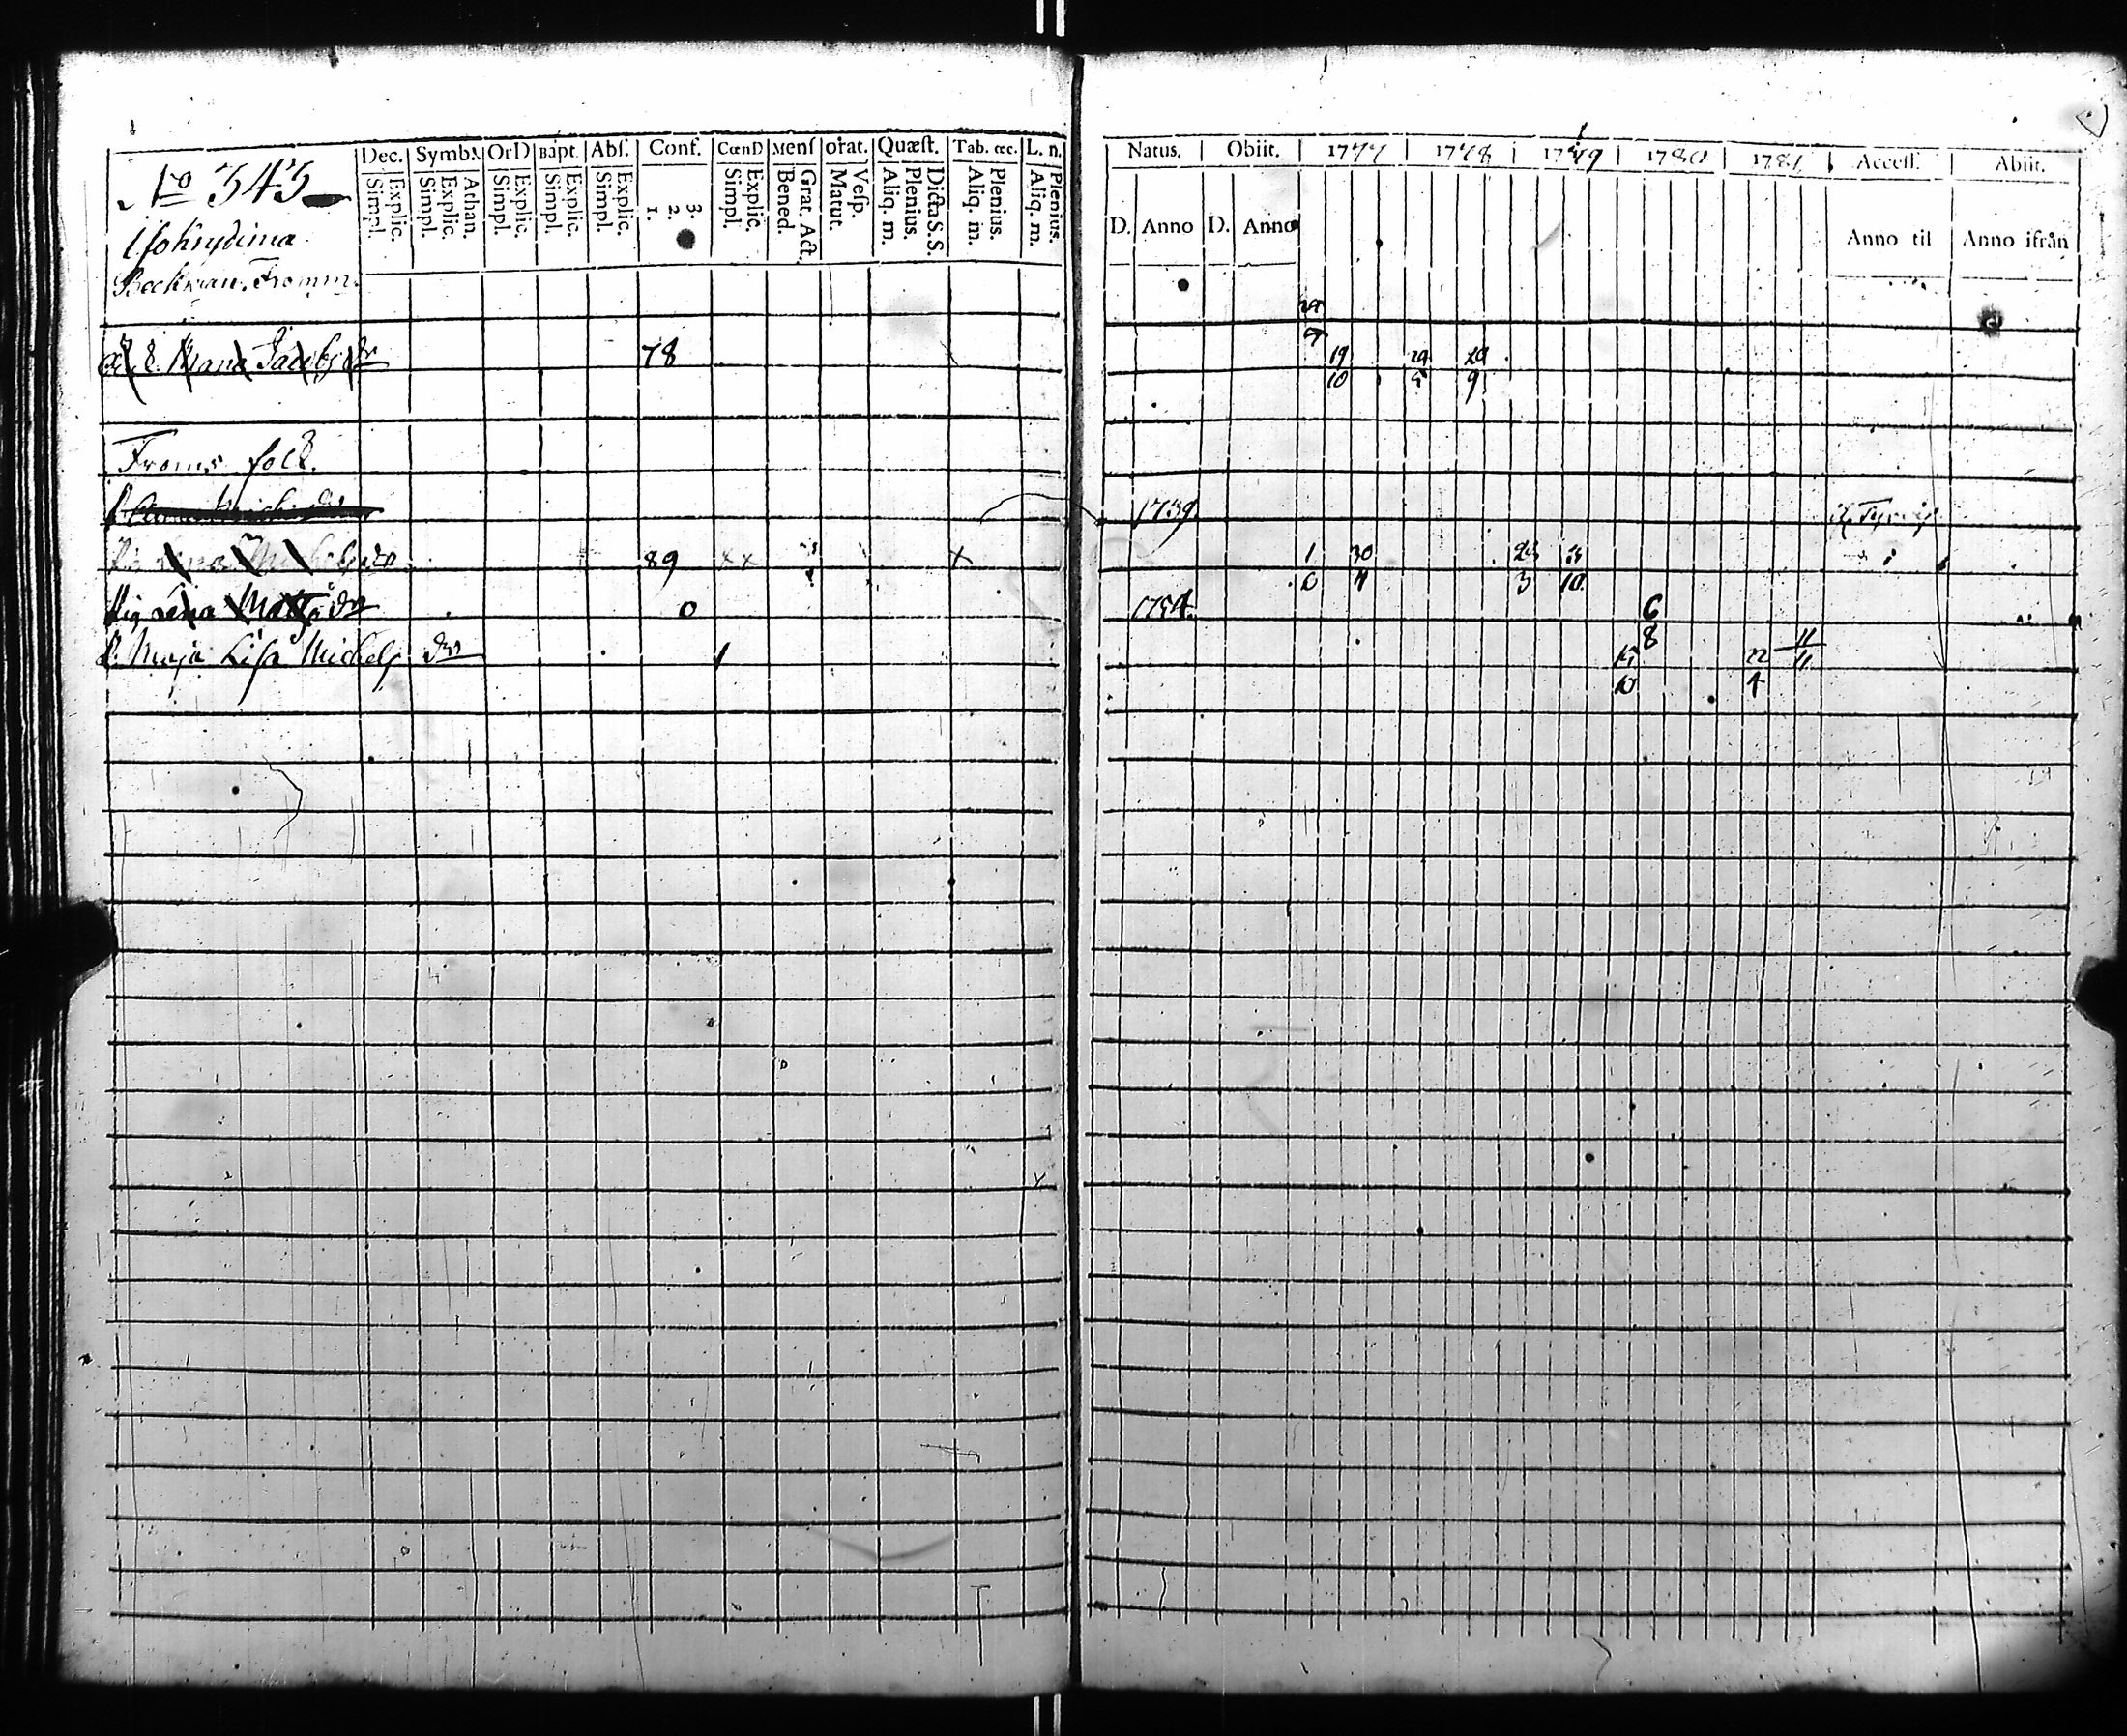 No 343
Dec. Symb. OrD Bapt. Abs. Conf. CœnD Mens orat. Quæst. Tab. œc. L. n.
Simpl. Explic. Simpl. Explic. Athan. Simpl. Explic. Simpl. Explic. Simpl. Explic. 1. 2. 3. Simpl. Explic. Bened. Grat. Act. Matut. Vesp. Aliq. m. Plenius. Dicta S.S. Aliq. m. Plenius. Aliq. m. Plenius.
Beckman. Fromm.
Jacobs dr 78
Froms folk.
Michels dr 89 x x x
Lena Matts dr 0
P. Maja Lisa Michels dr
Natus. Obiit. 1777 1778 1779 1780 1781 Access. Abiit.
D. Anno D. Anno Anno til Anno ifrån
29
9
19 29 20
10 5 9
1739.
1 30 25
6 4 3 10
1754. 6
8 11
15 22 11
10 4